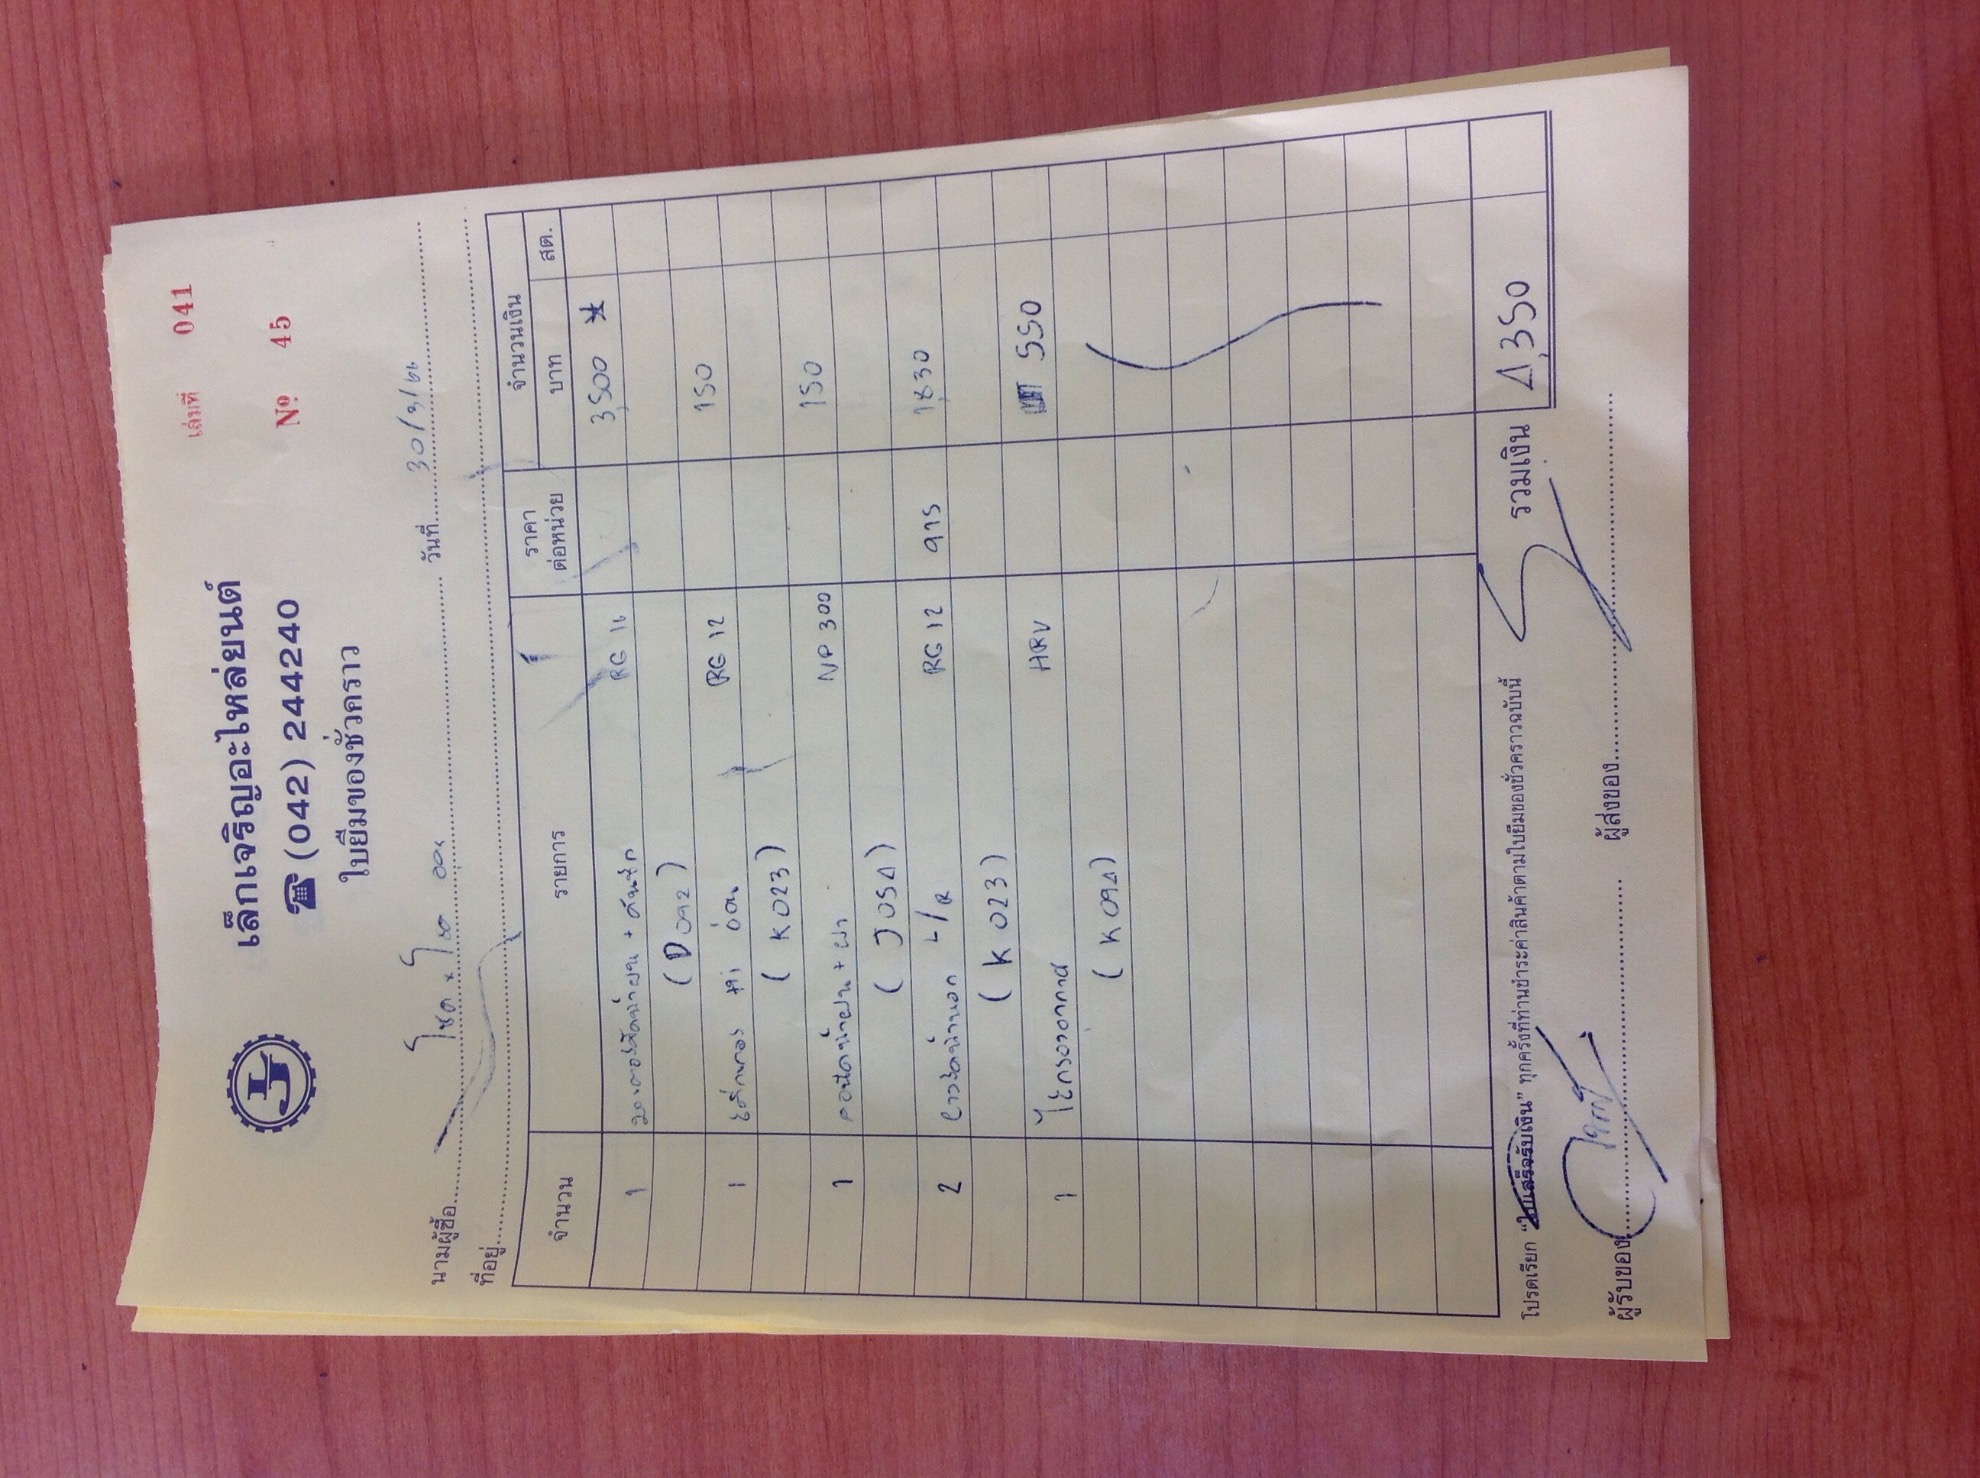 เล่มที่ 041
Nº 45
เล็กเจริญอะไหล่ยนต์
☎ (042) 244240
ใบยืมของชั่วคราว
นามผู้ซื้อ วันที่ 30/3/66
ที่อยู่
จำนวน รายการ ราคาต่อหน่วย จำนวนเงิน
บาท สต.
1 RG 11 3,500
(D092)
1 RG 12 150
(K023)
1 NP 300 150
(J054)
2 L/R RG 12 915 1,830
(K023)
1 ไส้กรองอากาศ HRV 550
(K094)
รวมเงิน 4,350
โปรดเรียก "ใบเสร็จรับเงิน" ทุกครั้งที่ท่านชำระค่าสินค้าตามใบยืมของชั่วคราวฉบับนี้
ผู้รับของ ผู้ส่งของ